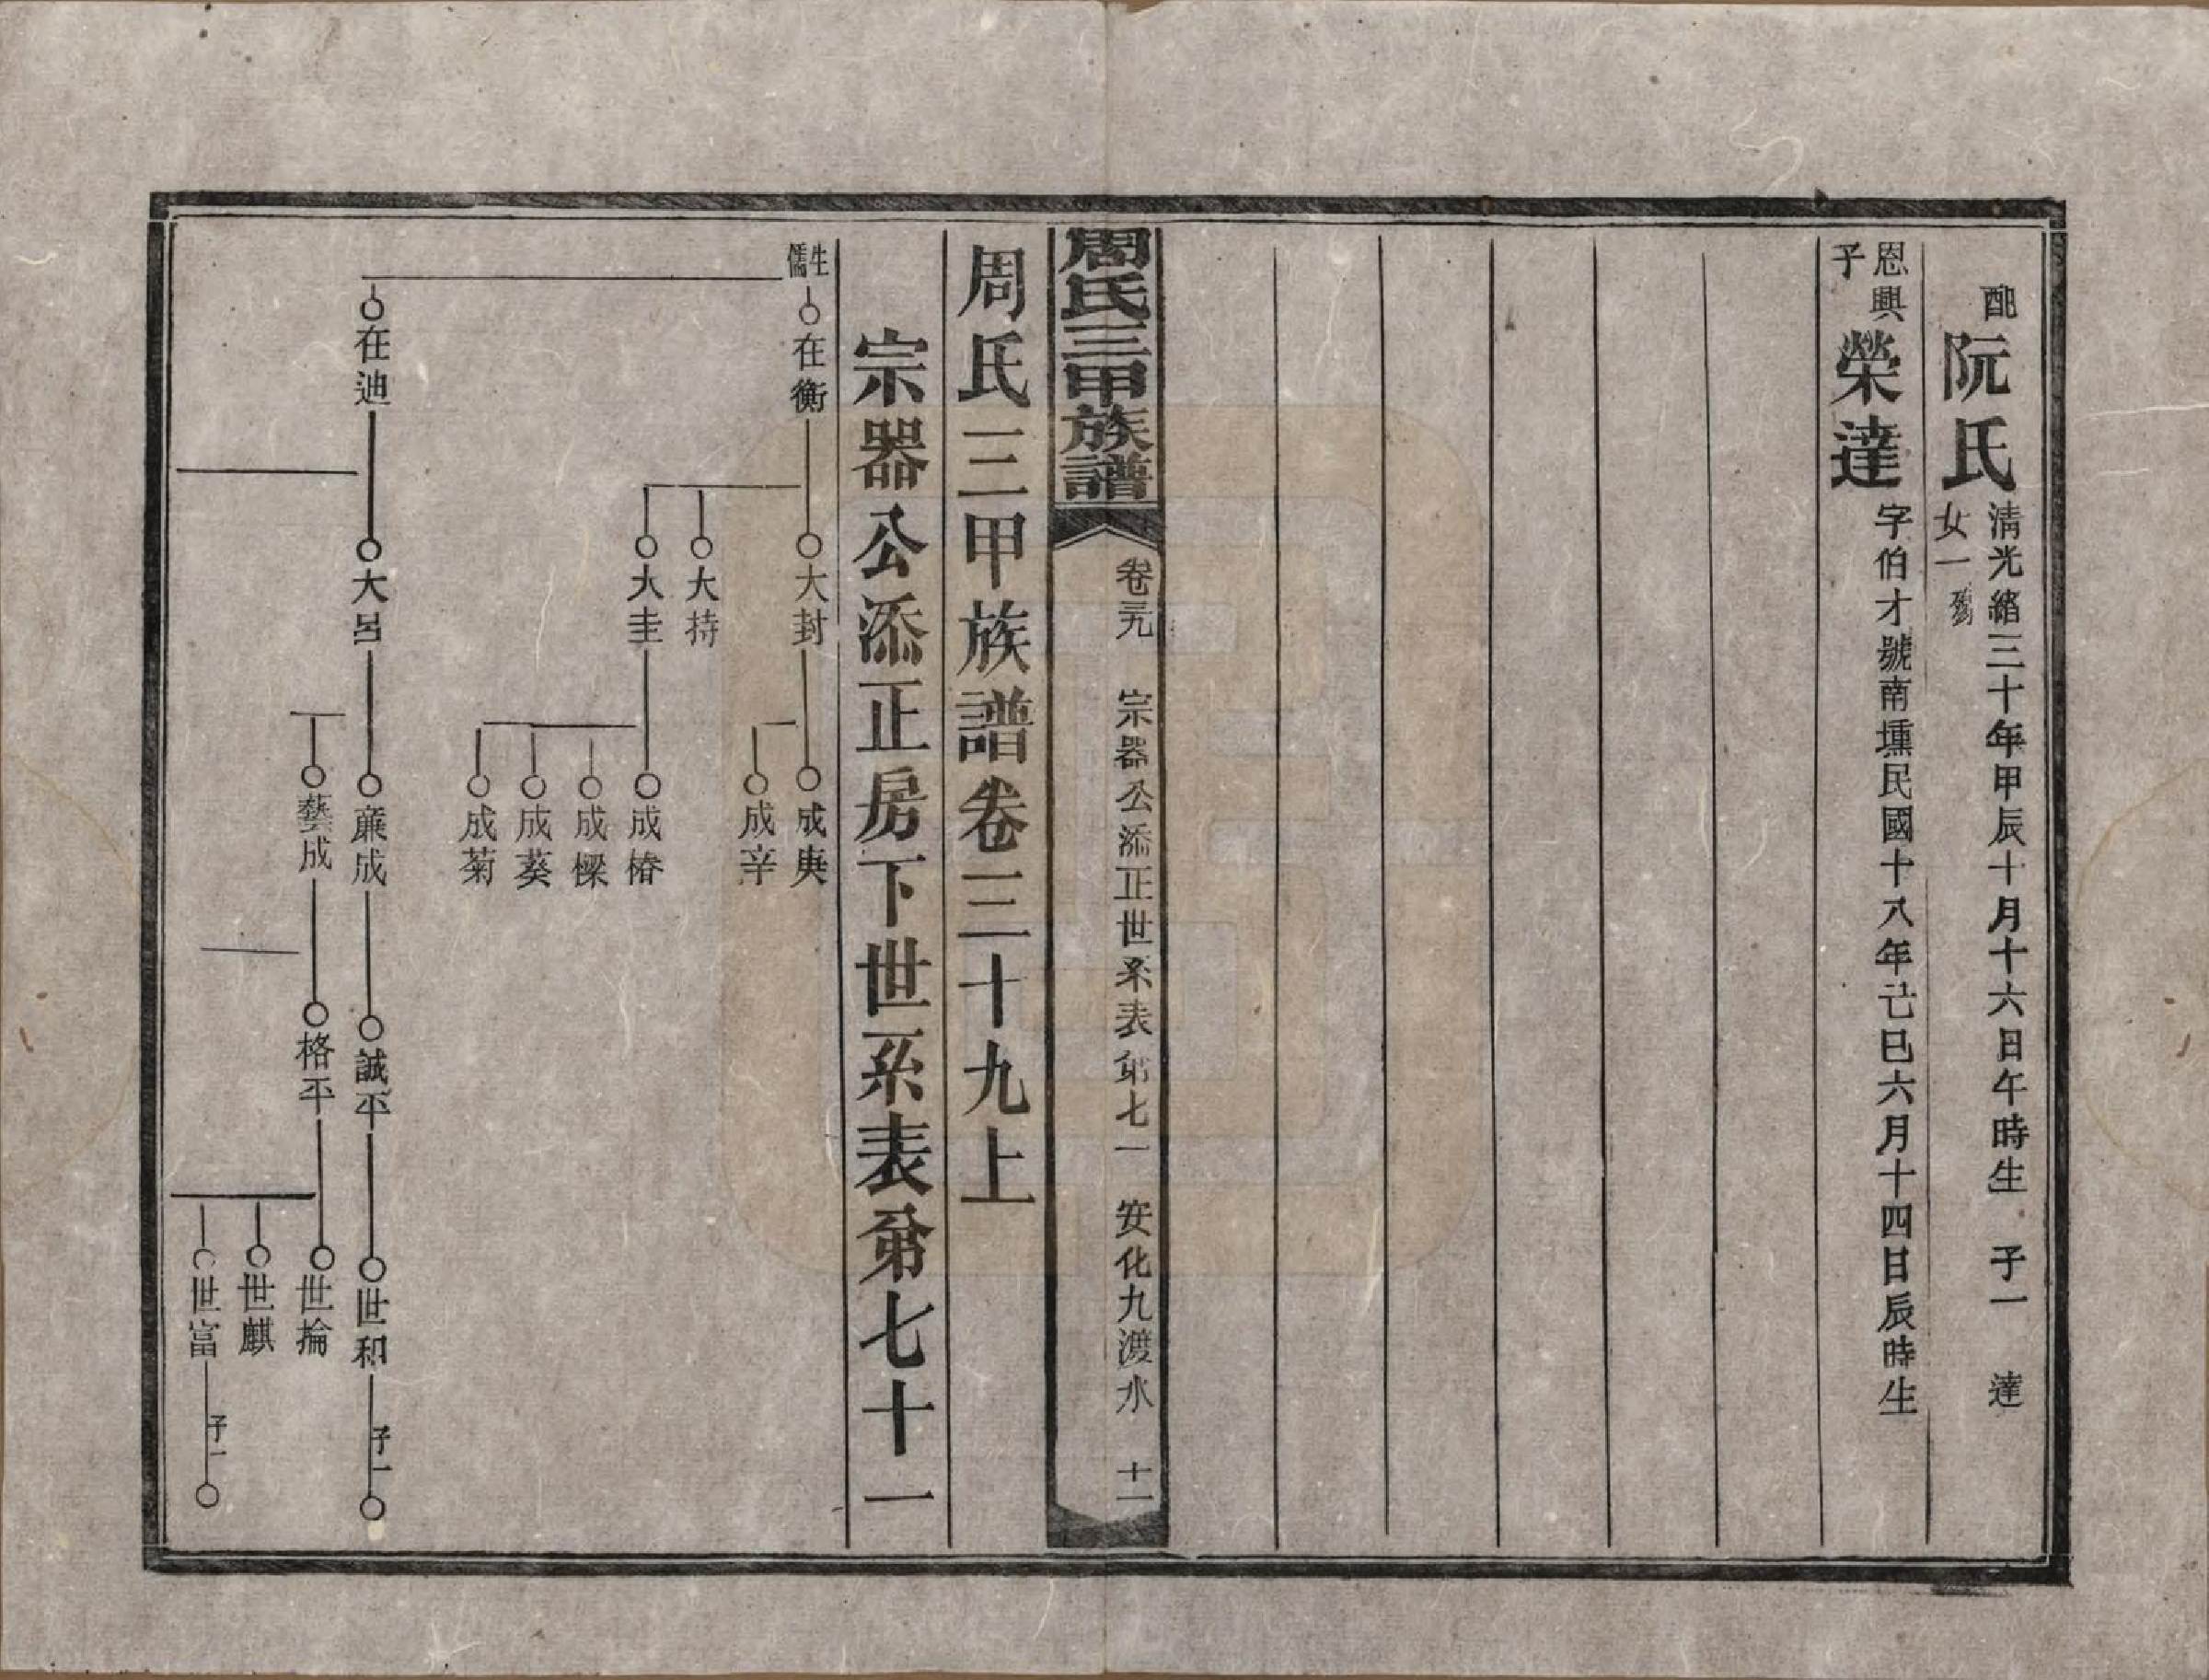 配
阮氏
清光緒三十年甲辰十月十六日午時生 子一 達
女一殤
恩興
子
榮達
字伯才號南壎民國十八年己巳六月十四日辰時生
周氏三甲族譜
卷三九 宗器公添正世系表弟七一 安化九渡水 十一
周氏三甲族譜卷三十九上
宗器公添正房下世系表弟七十一
生儒
在衡
大封
成庚
成辛
大持
大圭
成椿
成樑
成葵
成菊
在迪
大呂
薕成
誠平
世和
子一
藝成
格平
世掄
世麒
世富
子一